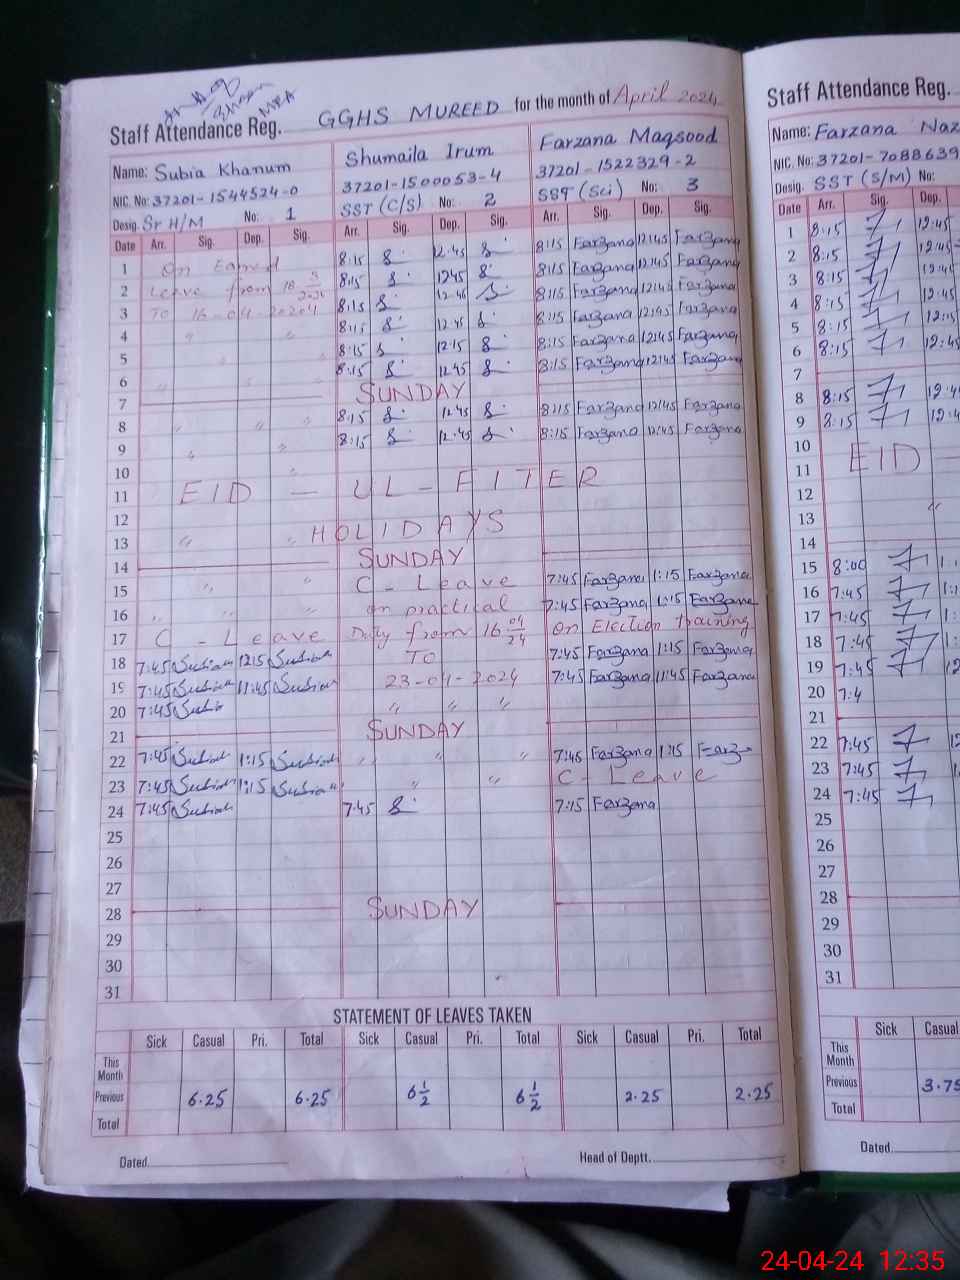 Staff Attendance Reg. GGHS MUREED for the month of April 2024
Name: Subia Khanum Shumaila Irum Farzana Maqsood
NIC. No: 37201-1544524-0 37201-1500053-4 37201-1522329-2
Desig. Sr H/M No: 1 SST (C/S) No: 2 SST (Sci) No: 3
Date Arr. Sig. Dep. Sig. Arr. Sig. Dep. Sig. Arr. Sig. Dep. Sig.
1 On Earned 8:15 12:45 8:15 Farzana 12:45 Farzana
2 Leave from 18 3 2024 8:15 1245 8:15 Farzana 12:45 Farzana
3 TO 16-04-20204 8:15 12:45 8:15 Farzana 12:45 Farzana
4 " 8:15 12:45 8:15 Farzana 12:45 Farzana
5 " 8:15 12:15 8:15 Farzana 12:45 Farzana
6 " 8:15 12:45 8:15 Farzana 12:45 Farzana
7 SUNDAY
8 " " 8:15 12:45 8:15 Farzana 12:45 Farzana
9 " " 8:15 12:45 8:15 Farzana 12:45 Farzana
10 "
11 EID - UL - FITER
12 HOLIDAYS
13 " "
14 SUNDAY
15 " " C - Leave 7:45 Farzana 1:15 Farzana
16 " " " on practical 7:45 Farzana 1:15 Farzana
17 C - Leave Duty from 16 04/24 on Election training
18 7:45 Subia 12:15 Subia TO 7:45 Farzana 1:15 Farzana
19 7:45 Subia 11:45 Subia 23-04-2024 7:45 Farzana 11:45 Farzana
20 7:45 Subia " " "
21 SUNDAY
22 7:45 Subia 1:15 Subia " " " 7:45 Farzana 1:15 Farz
23 7:45 Subia 1:15 Subia " " C - Leave
24 7:45 Subia 7:45 7:15 Farzana
25
26
27
28 SUNDAY
29
30
31
STATEMENT OF LEAVES TAKEN
Sick Casual Pri. Total Sick Casual Pri. Total Sick Casual Pri. Total
This Month
Previous 6.25 6.25 6 1/2 6 1/2 2.25 2.25
Total
Dated Head of Deptt.
Staff Attendance Reg.
Name: Farzana Naz
NIC. No: 37201-7088639
Desig. SST (S/M) No:
Date Arr. Sig. Dep.
1 8:15 12:45
2 8:15 12:45
3 8:15 12:45
4 8:15 12:45
5 8:15 12:15
6 8:15 12:45
7
8 8:15
9 8:15
10
11 EID -
12
13 "
14
15 8:00
16 7:45
17 7:45
18 7:45
19 7:45
20 7:4
21
22 7:45
23 7:45
24 7:45
25
26
27
28
29
30
31
Sick Casual
This Month
Previous 3.75
Total
Dated
24-04-24 12:35